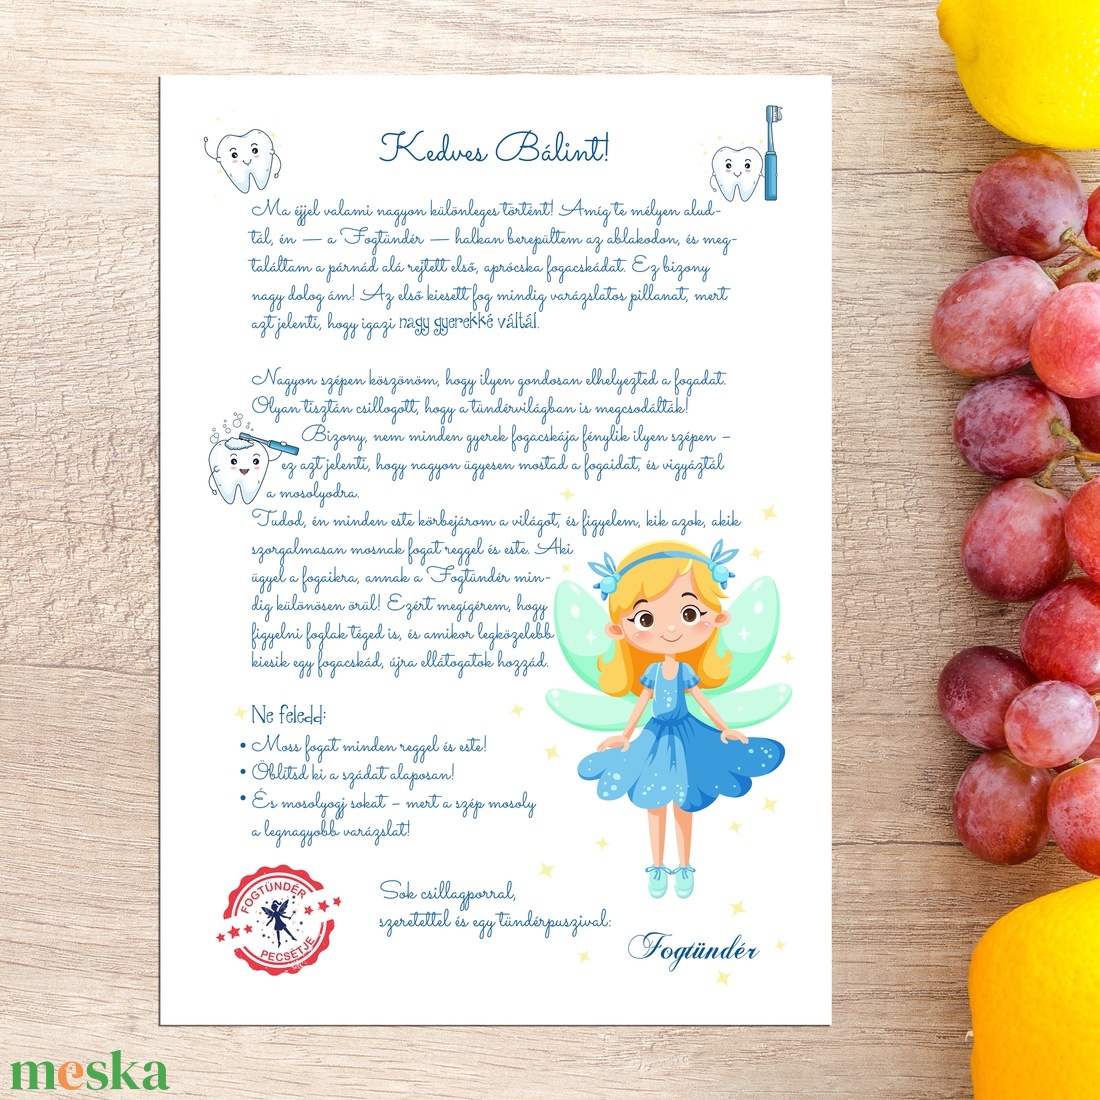 Kedves Bálint!
Ma éjjel valami nagyon különleges történt! Amíg te mélyen alud-
tál, én — a Fogtündér — halkan berepültem az ablakodon, és meg-
találtam a párnád alá rejtett első, aprócska fogacskádat. Ez bizony
nagy dolog ám! Az első kiesett fog mindig varázslatos pillanat, mert
azt jelenti, hogy igazi nagy gyerekké váltál.
Nagyon szépen köszönöm, hogy ilyen gondosan elhelyezted a fogadat.
Olyan tisztán csillogott, hogy a tündérvilágban is megcsodálták!
Bizony, nem minden gyerek fogacskája fénylik ilyen szépen –
ez azt jelenti, hogy nagyon ügyesen mostad a fogaidat, és vigyáztál
a mosolyodra.
Tudod, én minden este körbejárom a világot, és figyelem, kik azok, akik
szorgalmasan mosnak fogat reggel és este. Aki
ügyel a fogaikra, annak a Fogtündér min-
dig különösen örül! Ezért megígérem, hogy
figyelni foglak téged is, és amikor legközelebb
kiesik egy fogacskád, újra ellátogatok hozzád.
Ne feledd:
• Moss fogat minden reggel és este!
• Öblítsd ki a szádat alaposan!
• És mosolyogj sokat – mert a szép mosoly
a legnagyobb varázslat!
FOGTÜNDÉR
PECSÉTJE
Sok csillagporral,
szeretettel és egy tündérpuszival:
Fogtündér
meska